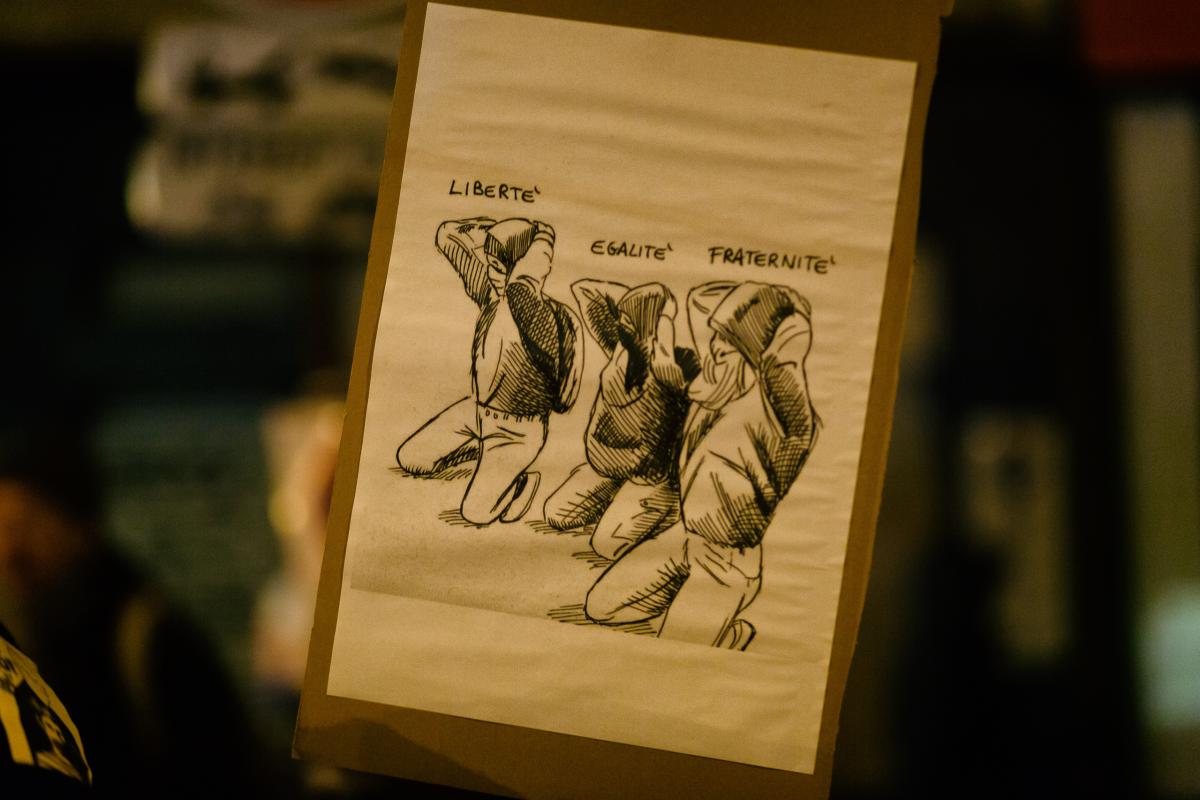 LIBERTE‵
EGALITE‵
FRATERNITE‵